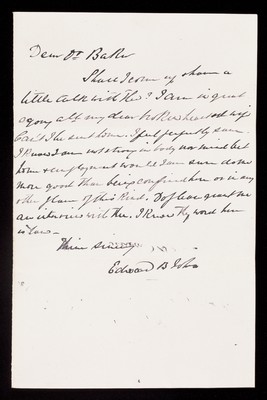 Dear Dr Baker
Shall I come up & have a
little talk with Thee? I am in great
agony abt my dear broken hearted wife
Can't I be sent home. I feel perfectly sane.
I know I am not strong in body nor mind but
home & employment would I am sure do me
more good than being confined here or in any
other place of this kind. Do please grant me
an interview with thee. I know Thy word here
is law.
Thine sincerely
Edward B